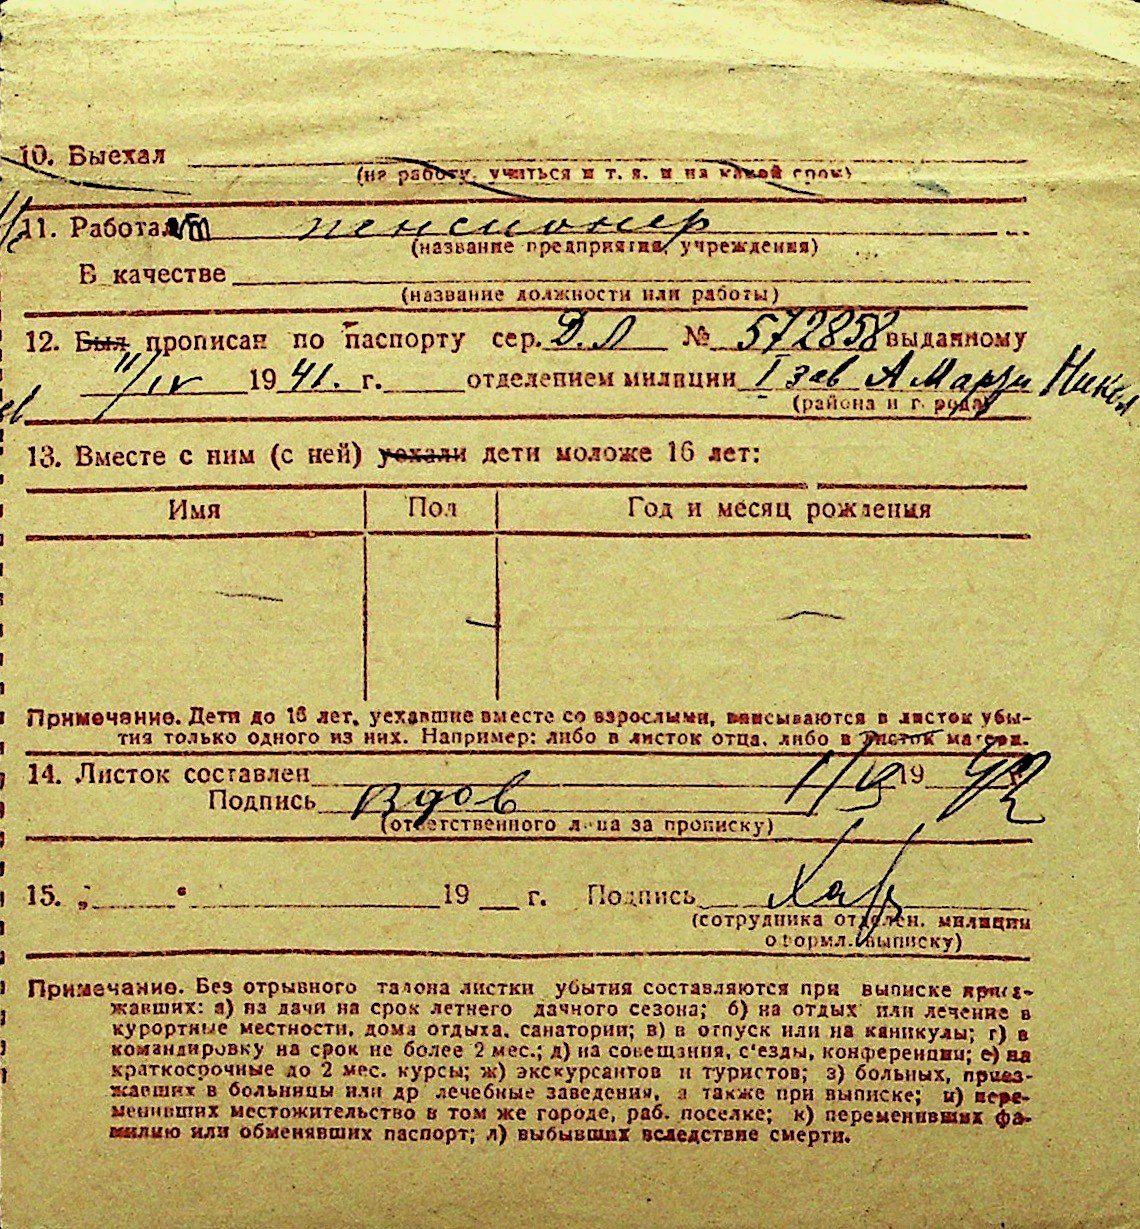 10. Выехал
(на работу, учиться и т. д. и на какой срок)
11. Работал пенсионер
(название предприятия, учреждения)
В качестве
(название должности или работы)
12. Был прописан по паспорту сер. Д.Л № 572858 выданному
11/IV 1941. г. отделением милиции I
(района и города)
13. Вместе с ним (с ней) уехали дети моложе 16 лет:
Имя Пол Год и месяц рождения
Примечание. Дети до 16 лет, уехавшие вместе со взрослыми, вписываются в листок убы-
тия только одного из них. Например: либо в листок отца, либо в листок матери.
14. Листок составлен 1942
Подпись Вдов
(ответственного лица за прописку)
15. „ “ 19 г. Подпись
(сотрудника отделен. милиции
оформл. выписку)
Примечание. Без отрывного талона листки убытия составляются при выписке приез-
жавших: а) на дачи на срок летнего дачного сезона; б) на отдых или лечение в
курортные местности, дома отдыха, санатории; в) в отпуск или на каникулы; г) в
командировку на срок не более 2 мес.; д) на совещания, с'езды, конференции; е) на
краткосрочные до 2 мес. курсы; ж) экскурсантов и туристов; з) больных, приез-
жавших в больницы или др лечебные заведения, а также при выписке; и) пере-
менивших местожительство в том же городе, раб. поселке; к) переменивших фа-
милию или обменявших паспорт; л) выбывших вследствие смерти.